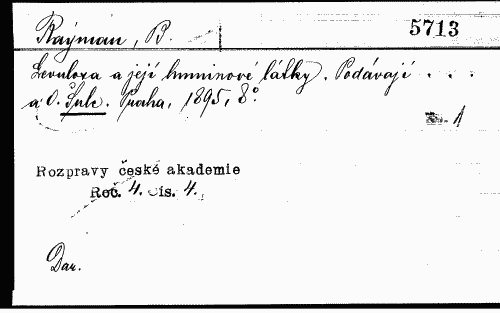 Raýman, B. 5713
Levulosa a její huminové látky. Podávají . . .
a O. Šulc. Praha, 1895, 8°.
Rozpravy české akademie
Roč. 4. čís. 4.
Dar.